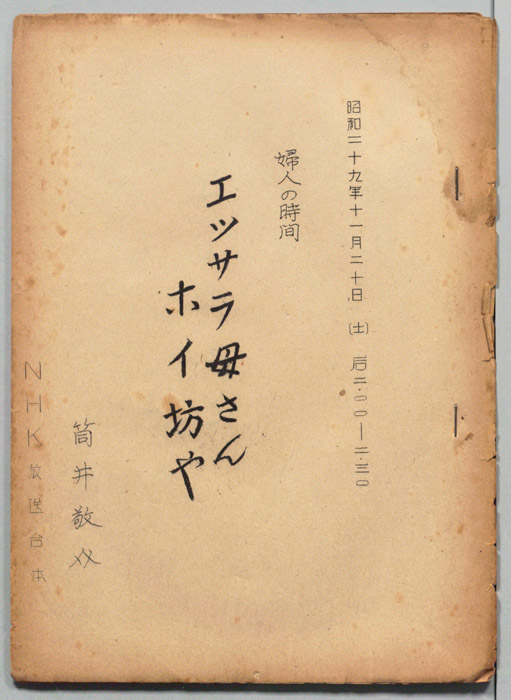 昭和二十九年十一月二十日(土)后二.〇〇―二.三〇
婦人の時間
エッサラ母さん
ホイ坊や
筒井敬介
NHK放送台本